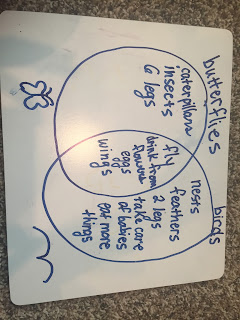 butterflies
caterpillars
insects
6 legs
fly
drink from
flowers
eggs
wings
birds
nests
feathers
2 legs
take care
of babies
eat more
things